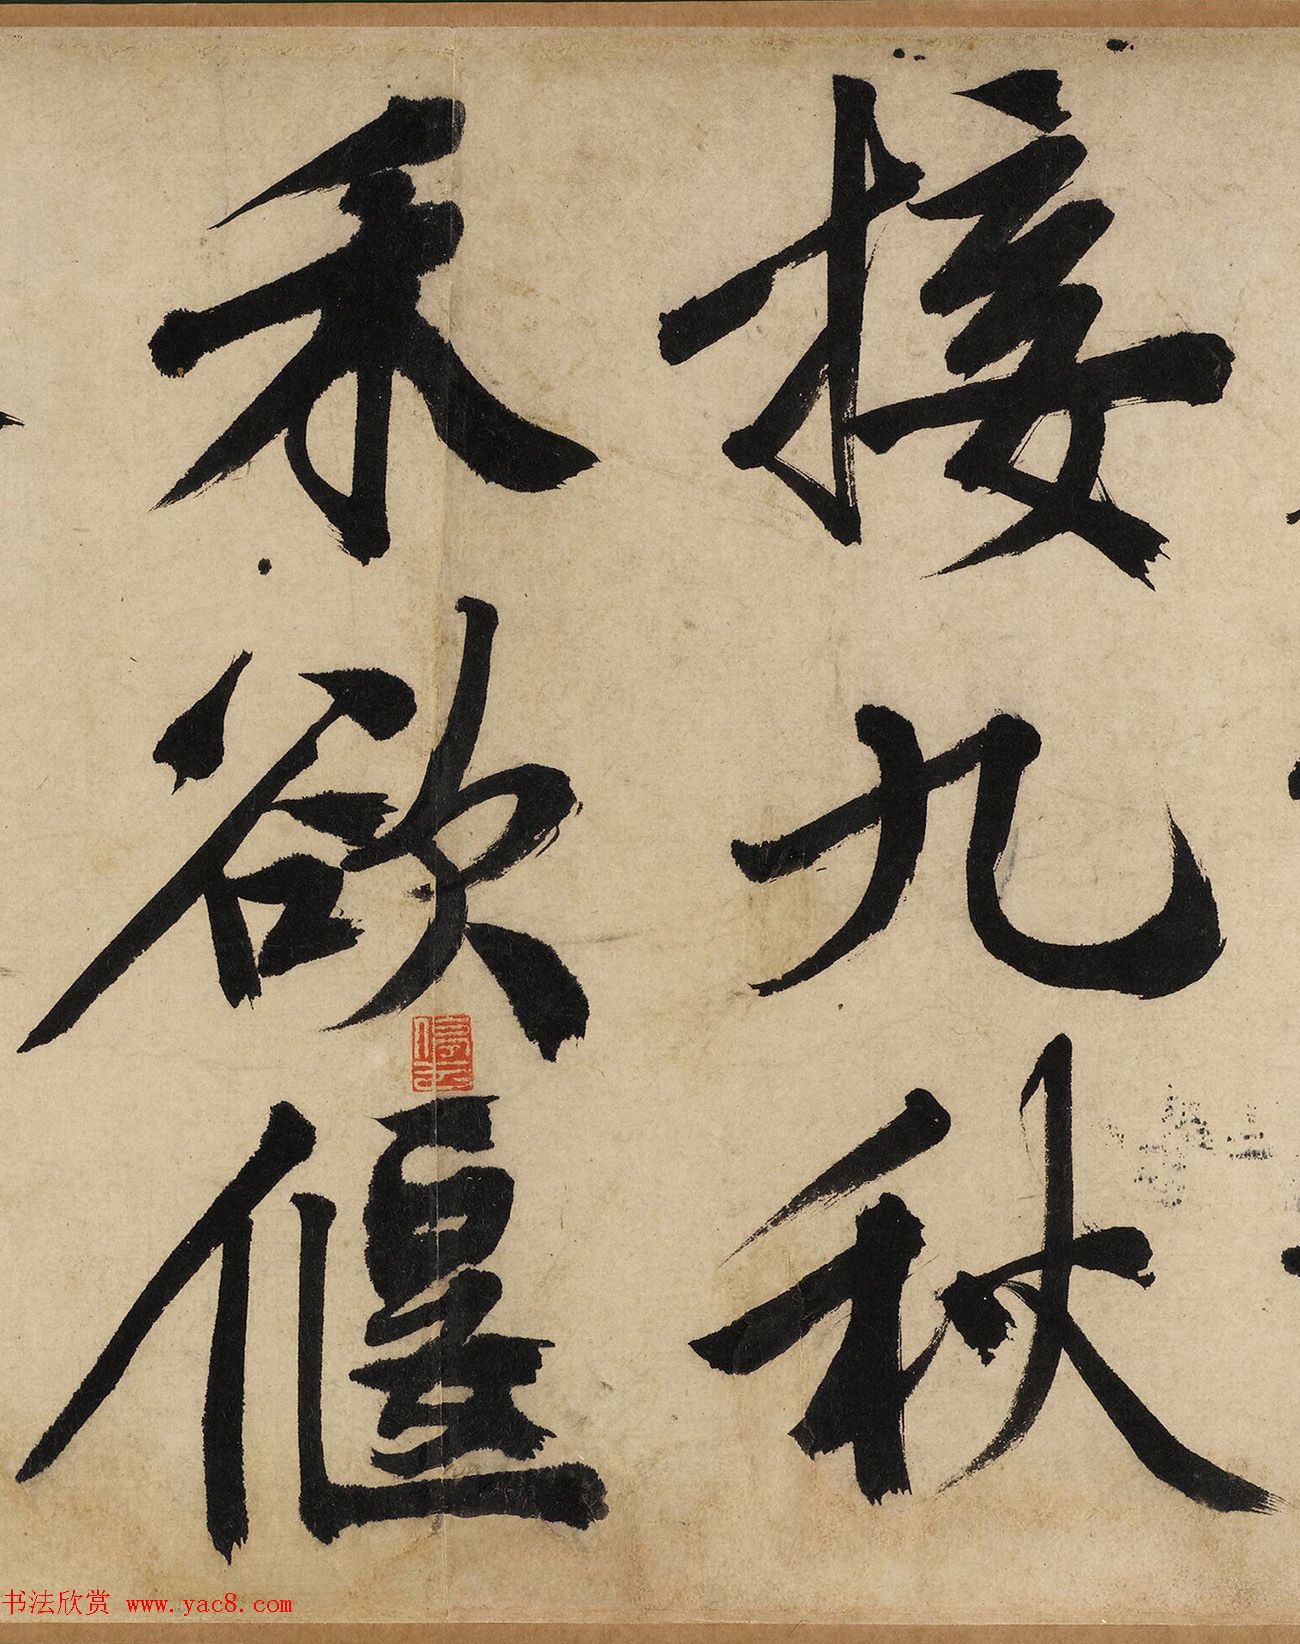 接九秋
禾欲偃
书法欣赏 www.yac8.com